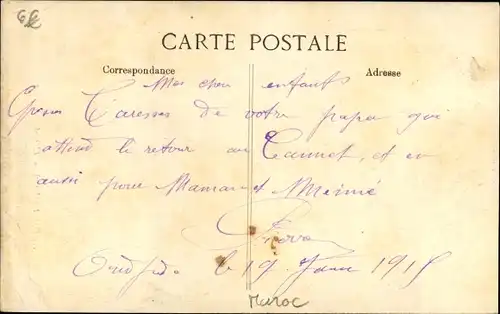 CARTE POSTALE
Correspondance
Adresse
Mes chers enfants
Caresses de votre papa qui
attend le retour au et en
aussi pour Maman et Mémé
le 19 Janv 1915
Maroc